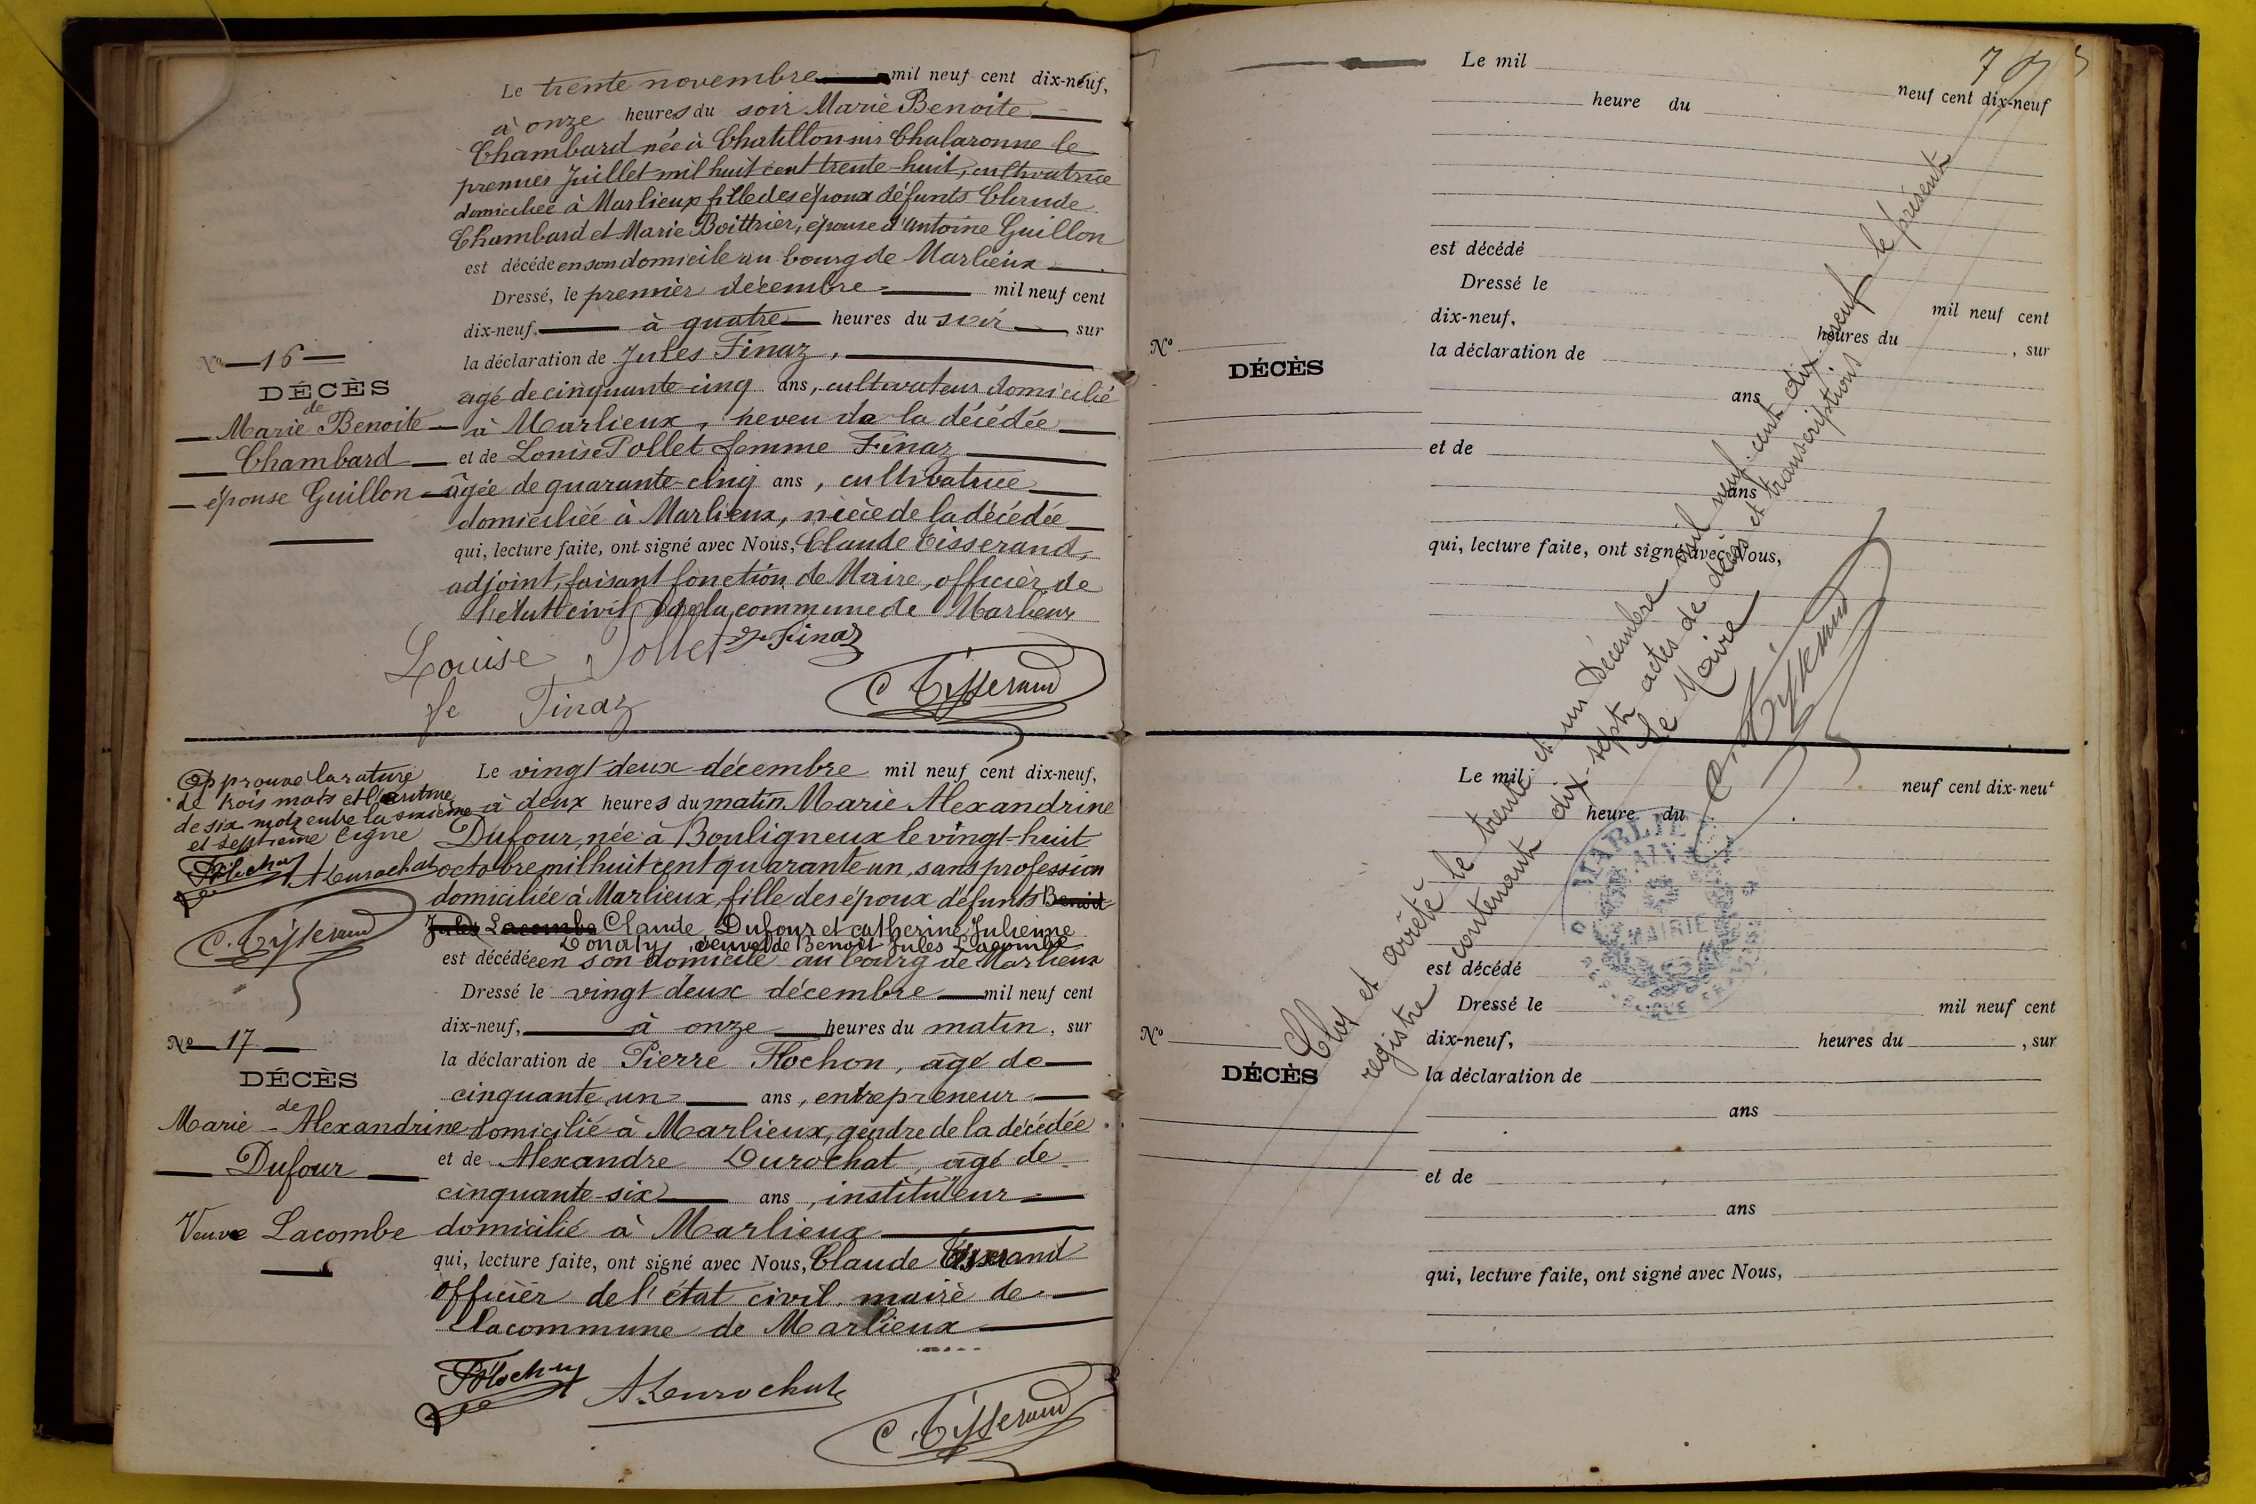 Le trente novembre mil neuf cent dix-neuf,
à onze heures du soir Marie Benoite
Chambard née à Chatillon sur Chalaronne le
premier Juillet mil huit cent trente-huit, cultivatrice
domiciliée à Marlieux fille des époux défunts Claude
Chambard et Marie Boittrier, épouse d'Antoine Guillon
est décédée en son domicile au bourg de Marlieux
Dressé, le premier décembre mil neuf cent
dix-neuf, à quatre heures du soir, sur
la déclaration de Jules Finaz,
agé de cinquante-cinq ans, cultivateur domicilié
à Marlieux, neveu de la décédée
et de Louise Pollet femme Finaz
âgée de quarante-cinq ans, cultivatrice
domiciliée à Marlieux, nièce de la décédée
qui, lecture faite, ont signé avec Nous, Claude Tisserand,
adjoint, faisant fonction de Maire, officier de
l'état civil de la commune de Marlieux
Louise Pollet J. Finaz
fe Finaz
C Tisserand
No 16
DÉCÈS
de
Marie Benoite
Chambard
épouse Guillon
Approuvé la rature
de trois mots et l'
de six mots entre la sixième
et septième ligne
P Flochon A Durochat
C. Tisserand
No 17
DÉCÈS
de
Marie-Alexandrine
Dufour
Veuve Lacombe
Le vingt deux décembre mil neuf cent dix-neuf,
à deux heures du matin Marie Alexandrine
Dufour, née à Bouligneux le vingt-huit
octobre mil huit cent quarante-un, sans profession
domiciliée à Marlieux, fille des époux défunts Benoit
Jules Lacombe Claude Dufour et catherine Julienne
veuve de Benoit Jules Lacombe
est décédée en son domicile au bourg de Marlieux
Dressé le vingt deux décembre mil neuf cent
dix-neuf, à onze heures du matin, sur
la déclaration de Pierre Flochon, agé de
cinquante un ans, entrepreneur
domicilié à Marlieux, gendre de la décédée
et de Alexandre Durochat, agé de
cinquante-six ans, instituteur
domicilié à Marlieux
qui, lecture faite, ont signé avec Nous, Claude Tisserand
officier de l'état civil, maire de
la commune de Marlieux
P Flochon A. Durochat
C. Tisserand
7
Le mil neuf cent dix-neuf
heure du
est décédé
Dressé le mil neuf cent
dix-neuf, heures du , sur
la déclaration de
ans
et de
ans
qui, lecture faite, ont signé avec Nous,
No
DÉCÈS
Clos et arrêté le trente et un Décembre mil neuf cent dix neuf le présent
registre contenant dix-sept actes de décès et transcriptions
Le Maire
C. Tisserand
Le mil neuf cent dix-neuf
heure du
MARLIEUX
AIN
MAIRIE
RÉPUBLIQUE FRANÇAISE
est décédé
Dressé le mil neuf cent
dix-neuf, heures du , sur
la déclaration de
ans
et de
ans
qui, lecture faite, ont signé avec Nous,
No
DÉCÈS